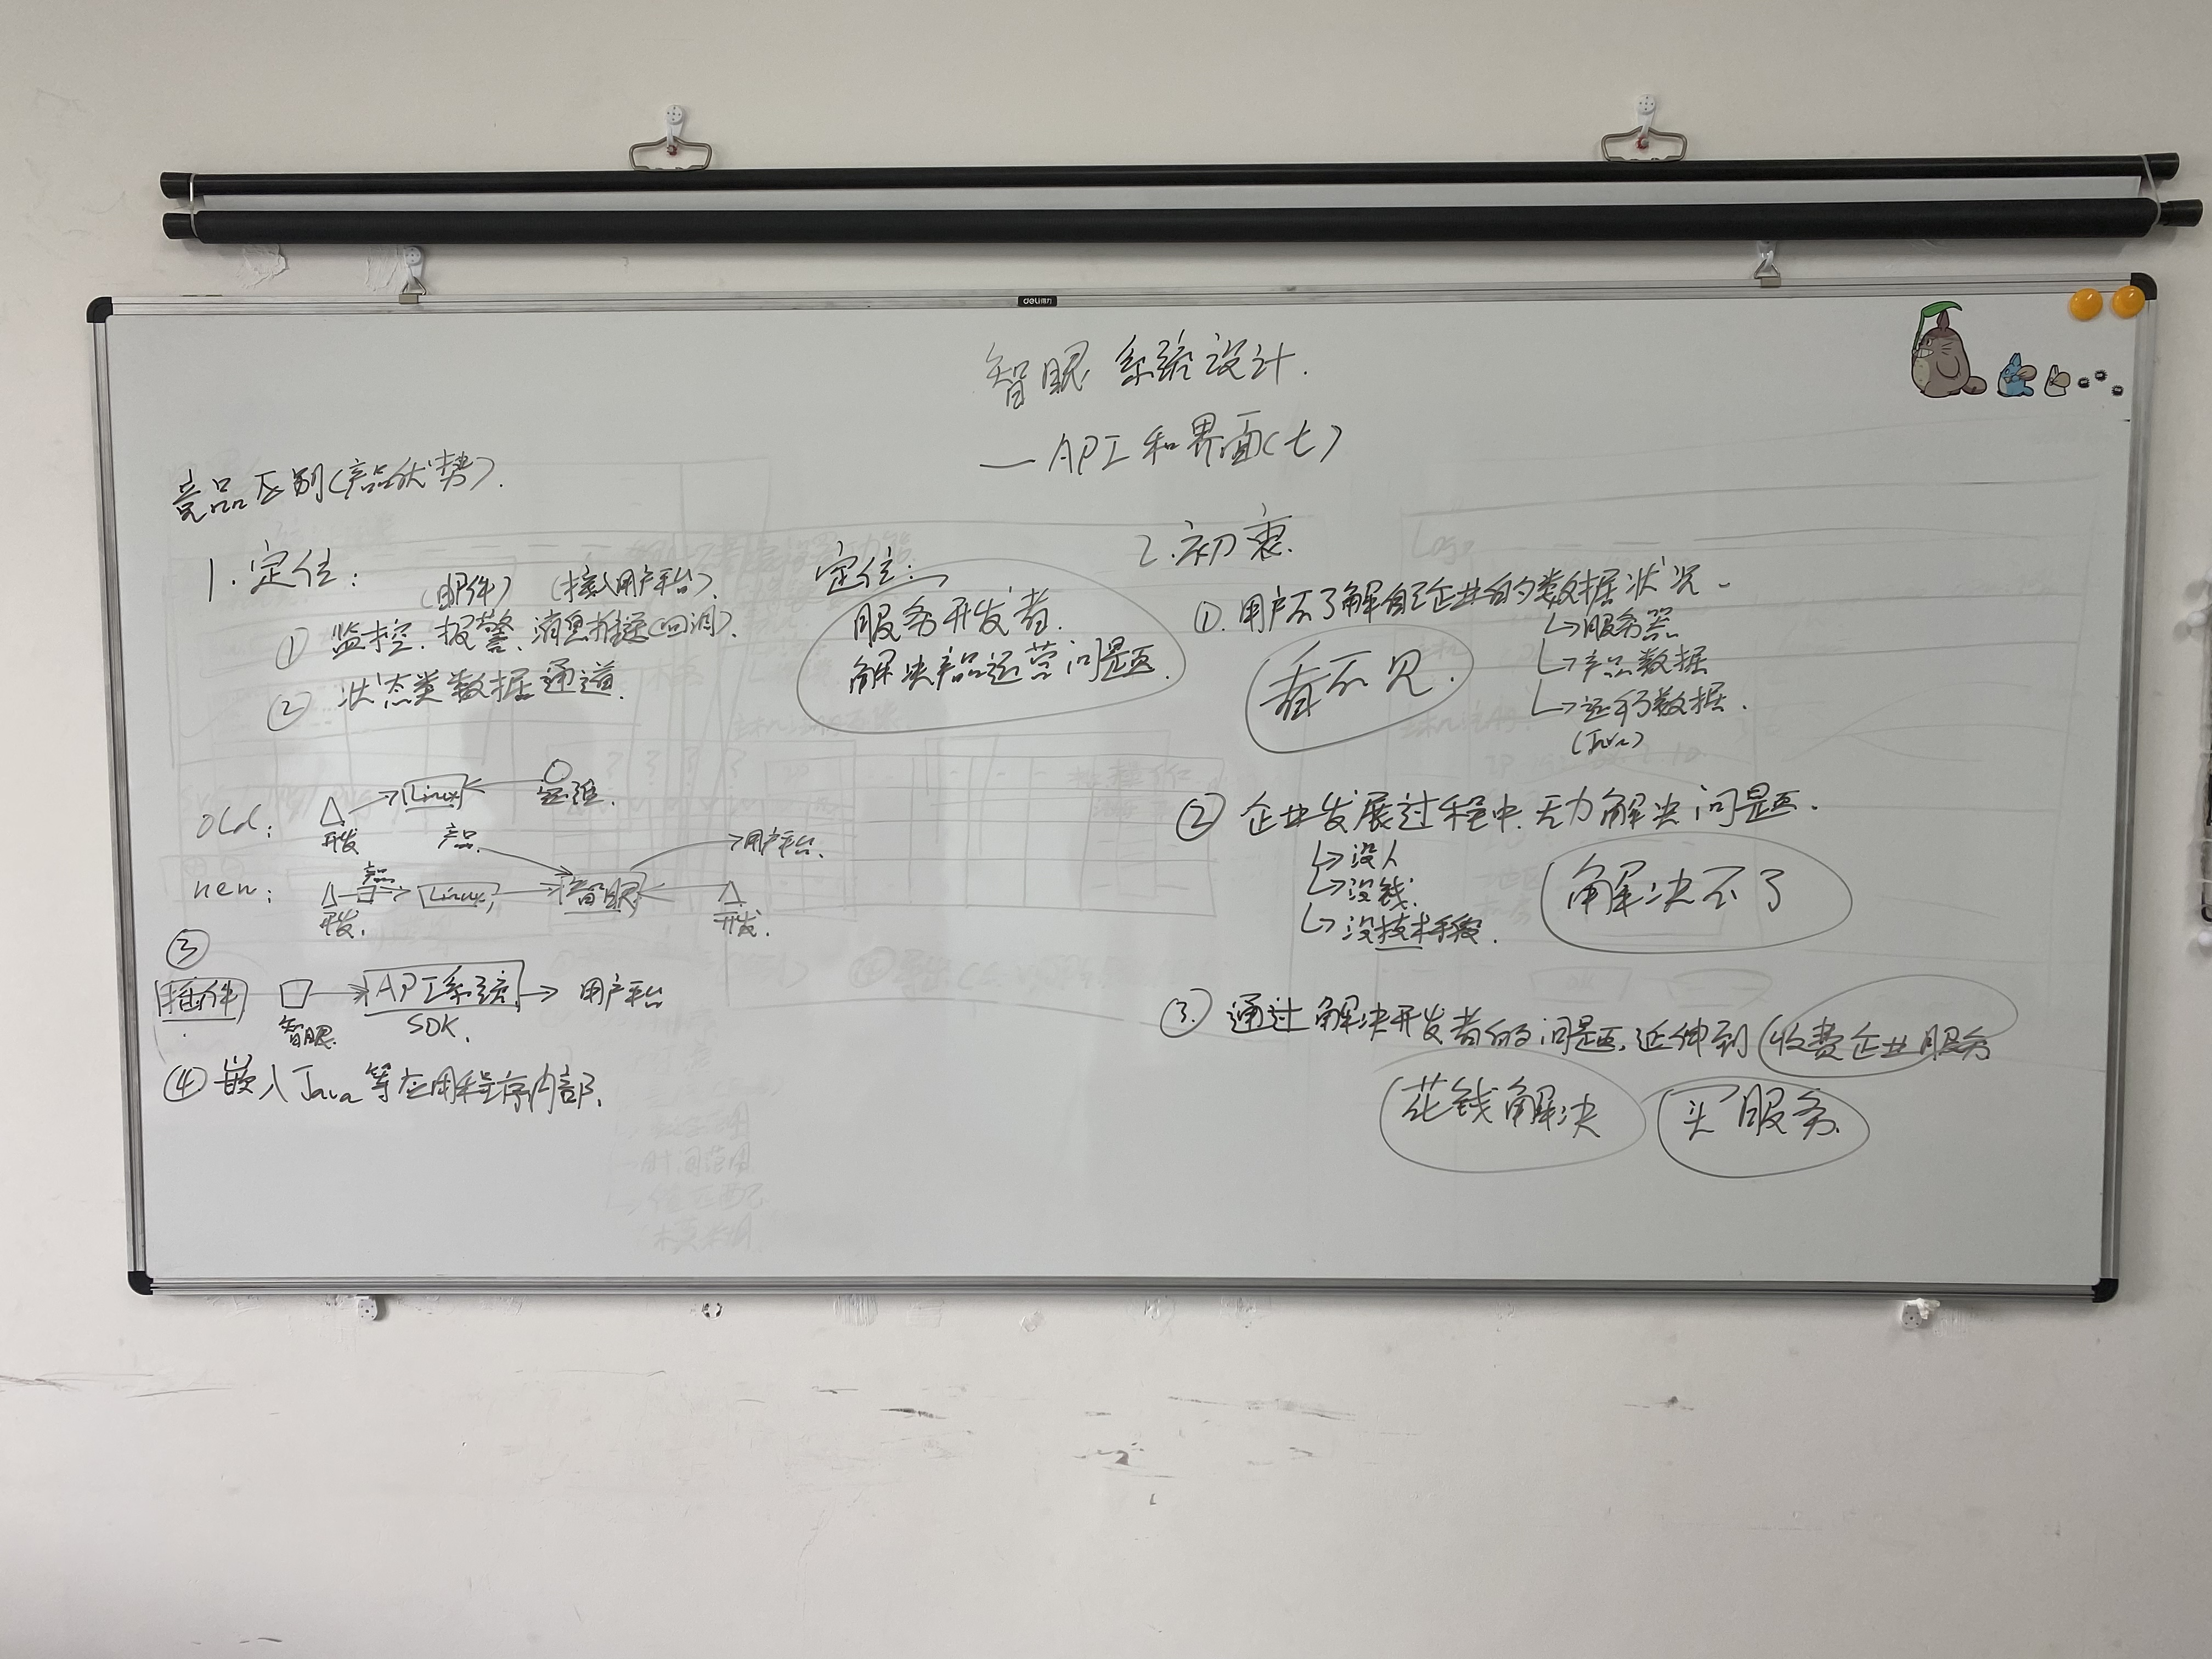 deli得力
智眼系统设计.
—API和界面(七)
竞品区别(产品优势).
1.定位:
(邮件) (接入用户平台).
① 监控.报警、消息推送(回调).
② 状态类数据通道.
定位:
服务开发者.
解决产品运营问题.
old: Linux
开发 运维.
产品. 用户平台.
new: 产品 Linux 智眼
开发. 开发.
③
插件 API系统 用户平台
智眼. SDK.
④ 嵌入Java等应用程序内部.
2.初衷.
①.用户不了解自己企业的数据状况.
→服务器
→产品数据
→运行数据.
看不见.
② 企业发展过程中.无力解决问题.
→没人
→没钱.
→没技术手段.
解决不了
③.通过解决开发者的问题.延伸到收费企业服务
花钱解决 买服务.